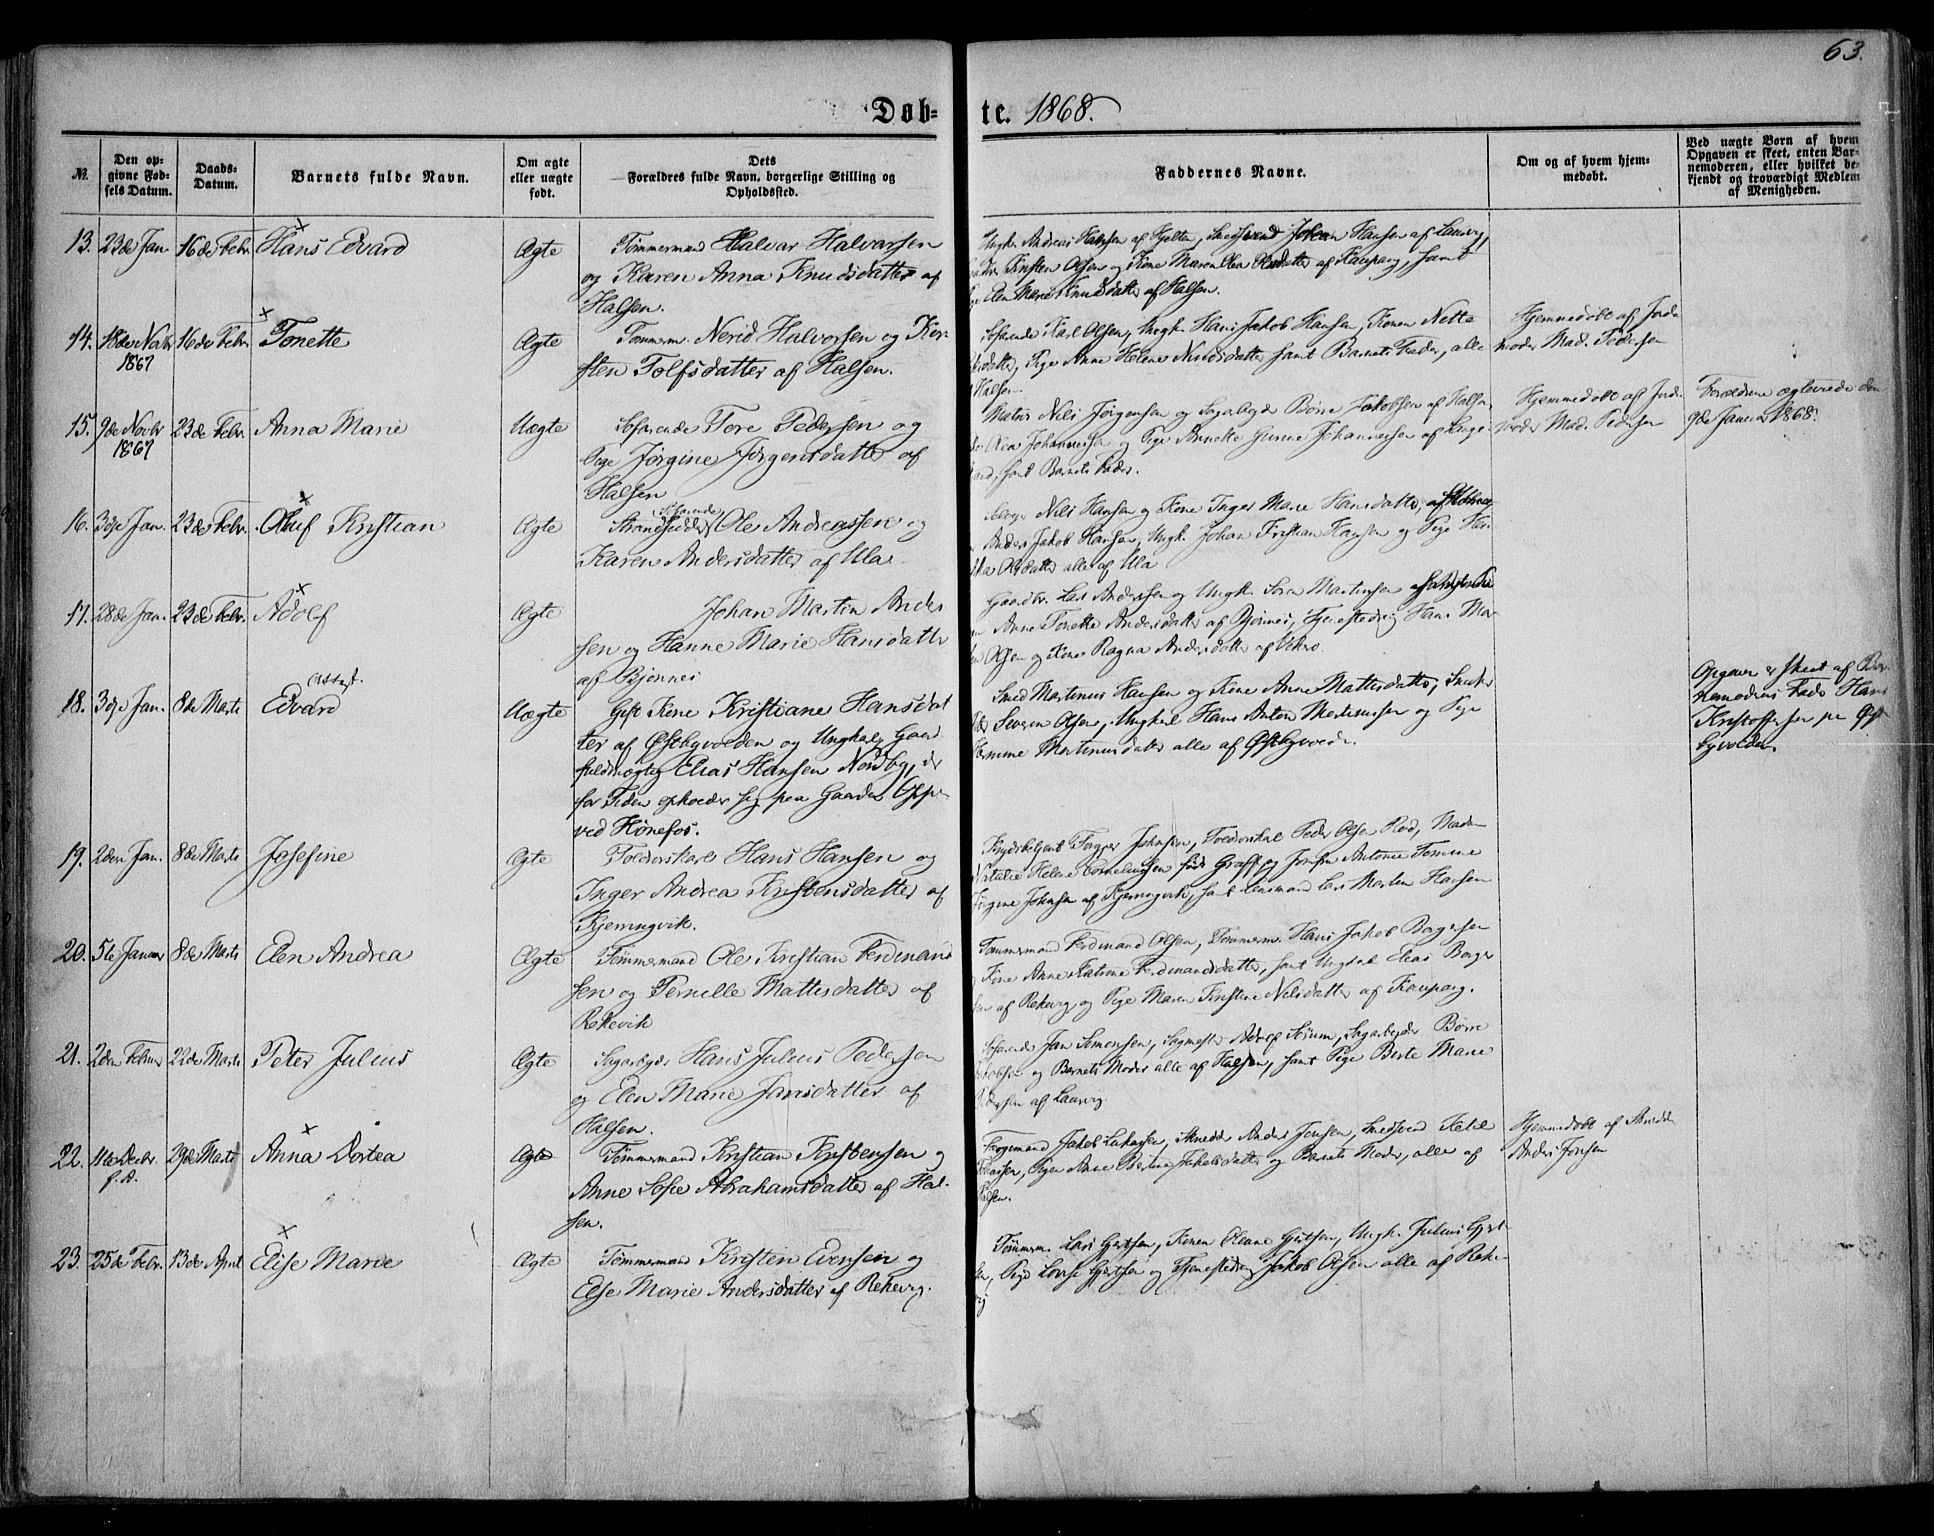 63.
Døb- te. 1868.
№. Den opgivne Fødsels Datum. Daabs-Datum. Barnets fulde Navn. Om ægte eller uægte født. Dets Forældres fulde Navn, borgerlige Stilling og Opholdssted. Faddernes Navne. Om og af hvem hjemmedøbt. Ved uægte Børn af hvem Opgaven er skeet, enten Barnemoderen, eller hvilket bekjendt og troværdigt Medlem af Menigheden.
13. 23de Jan. 16de Febr. Hans Edvard Ægte Tømmermand Halvar Halvarsen
og Karen Anna Knudsdatter af
Halsen.
Ungk. Andreas Hansen af Hjelten, Smedsvend Johan Hansen af Laurvig,
Kristen Olsen og Kone Maren Olea Olsdatter af Kaupang, samt
Elen Marie Knudsdatter af Halsen.
14. 18de Novbr 1867 16de Febr. Tonette Ægte Tømmerm. Nerid Halvorsen og Kir-
sten Tolfsdatter af Halsen.
Søfarende Karl Olsen, Ungk. Hans Jakob Hansen, Konen Nette
datter, Pige Anne Helene datter samt Barnets Fader, alle
Halsen.
Hjemmedøbt af Jorde
moder Mad. Pedersen
15. 9de Novbr 1867 23de Febr. Anna Marie Uægte Søfarende Tore Pedersen og
Pige Jørgine Jørgensdatter af
Halsen
Matros Nils Jørgensen og Sagarbejder Børre Jakobsen af Halsen,
Johannesen og Pige Annette Gurine Johannesen af Lange-
samt Barnets Fader.
Hjemmedøbt af Jorde
moder Mad. Pedersen
Forældrene ægteviede den
9de Januar 1868.
16. 3dje Jan. 23de Febr. Oluf Kristian Ægte Strandsidder Søfarende Ole Andreassen og
Karen Andersdatter af Ula
Nils Hansen og Kone Inger Marie Hansdatter af
Anders Jakob Hansen, Ungk. Johan Kristian Hansen og Pige
Olsdatter alle af Ula
17. 28de Jan. 23de Febr. Adolf Ægte Johan Martin Ander-
sen og Hanne Marie Hansdatter
af Bjønnes
Gaardbr. Lars Andersen og Ungk. Søren Martinsen
Anne Tonette Andersdatter af Bjønnes, Tjenestedreng Hans Mar-
Olsen og Kone Ragna Andersdatter af
18. 3dje Jan. 8de Marts Edvard Attest. Uægte Gift Kone Kristiane Hansdat
ter af Østbyveden og Ungkarl, Gaard
fuldmægtig Elias Hansen Nordby, der
for Tiden opholder sig paa Gaarden
ved Hønefos.
Smed Martinus Hansen og Kone Anne Mattisdatter,
Severin Olsen, Ungkarl Hans Anton Martinussen og Pige
Martinusdatter alle af Østbyveden.
Opgaven er skeet af Bar-
nemoderens Fader Hans
Kristoffersen paa Øst
byveden.
19. 2den Jan. 8de Marts Josefine Ægte Toldorskarl Hans Hansen og
Inger Andrea Kristensdatter af
Kjerringvik.
Krydsbetjent Torger Johnsen, Toldorskarl Peder Olsen Rød, Madam
Natalie Helene Corneliussen født Graff og Jomfru Antonie Tomine
Jørgine Johnsen af Kjerringvik, samt Lensmand Lars Morten Hansen
20. 5te Januar 8de Marts Elen Andrea Ægte Tømmermand Ole Kristian Ferdinand
sen og Pernille Mattisdatter af
Rekevik
Tømmermand Ferdinand Olsen, Tømmerm. Hans Jakob Borgersen
Kone Anne Katrine Ferdinandsdatter, samt Ungkarl Elias Borger
sen af Rekevig, og Pige Maren Kristine Nilsdatter af Kaupang.
21. 2den Februar 22de Marts Peter Julius Ægte Sagarbejder Hans Julius Pedersen
og Elen Marie Jansdatter af
Halsen.
Søfarende Jan Simonsen, Sagmester Sørum, Sagarbejder Børre
Jakobsen og Barnets Moder alle af Halsen, samt Pige Berte Marie
Pedersen af Laurvig
22. 11te Decbr. f. A. 29de Marts Anna Dortea Ægte Tømmermand Kristian Kristensen og
Anne Sofie Abrahamsdatter af Hal-
sen.
Færgemand Jakob Lukassen, Skrædder Anders Jensen, Smedsvend Ketil
Pigen Anne Martine Jakobsdatter og Barnets Moder, alle af
Halsen.
Hjemmedøbt af Skrædder
Anders Jensen
23. 25de Febr. 13de April Elise Marie Ægte Tømmermand Kristen Evensen og
Else Marie Andersdatter af Rekevig.
Tømmerm. Lars Gjertsen, Konen Oleane Gjertsen, Ungk. Julius Gjert-
sen, Pige Lovise Gjertsen og Tjenestedreng Jakob Olsen alle af Reke-
vig